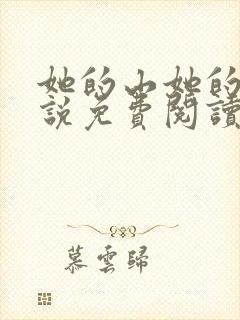 她的山她的
說免費閱讀
慕雲歸